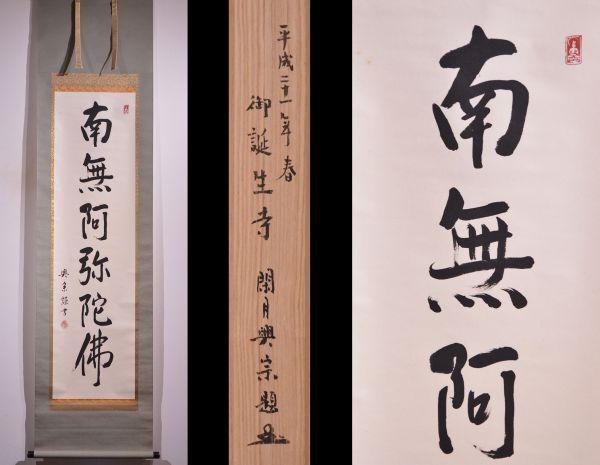 南無阿弥陀佛
興宗謹書
平成二十一年春
御誕生寺
閑月興宗題
南無阿